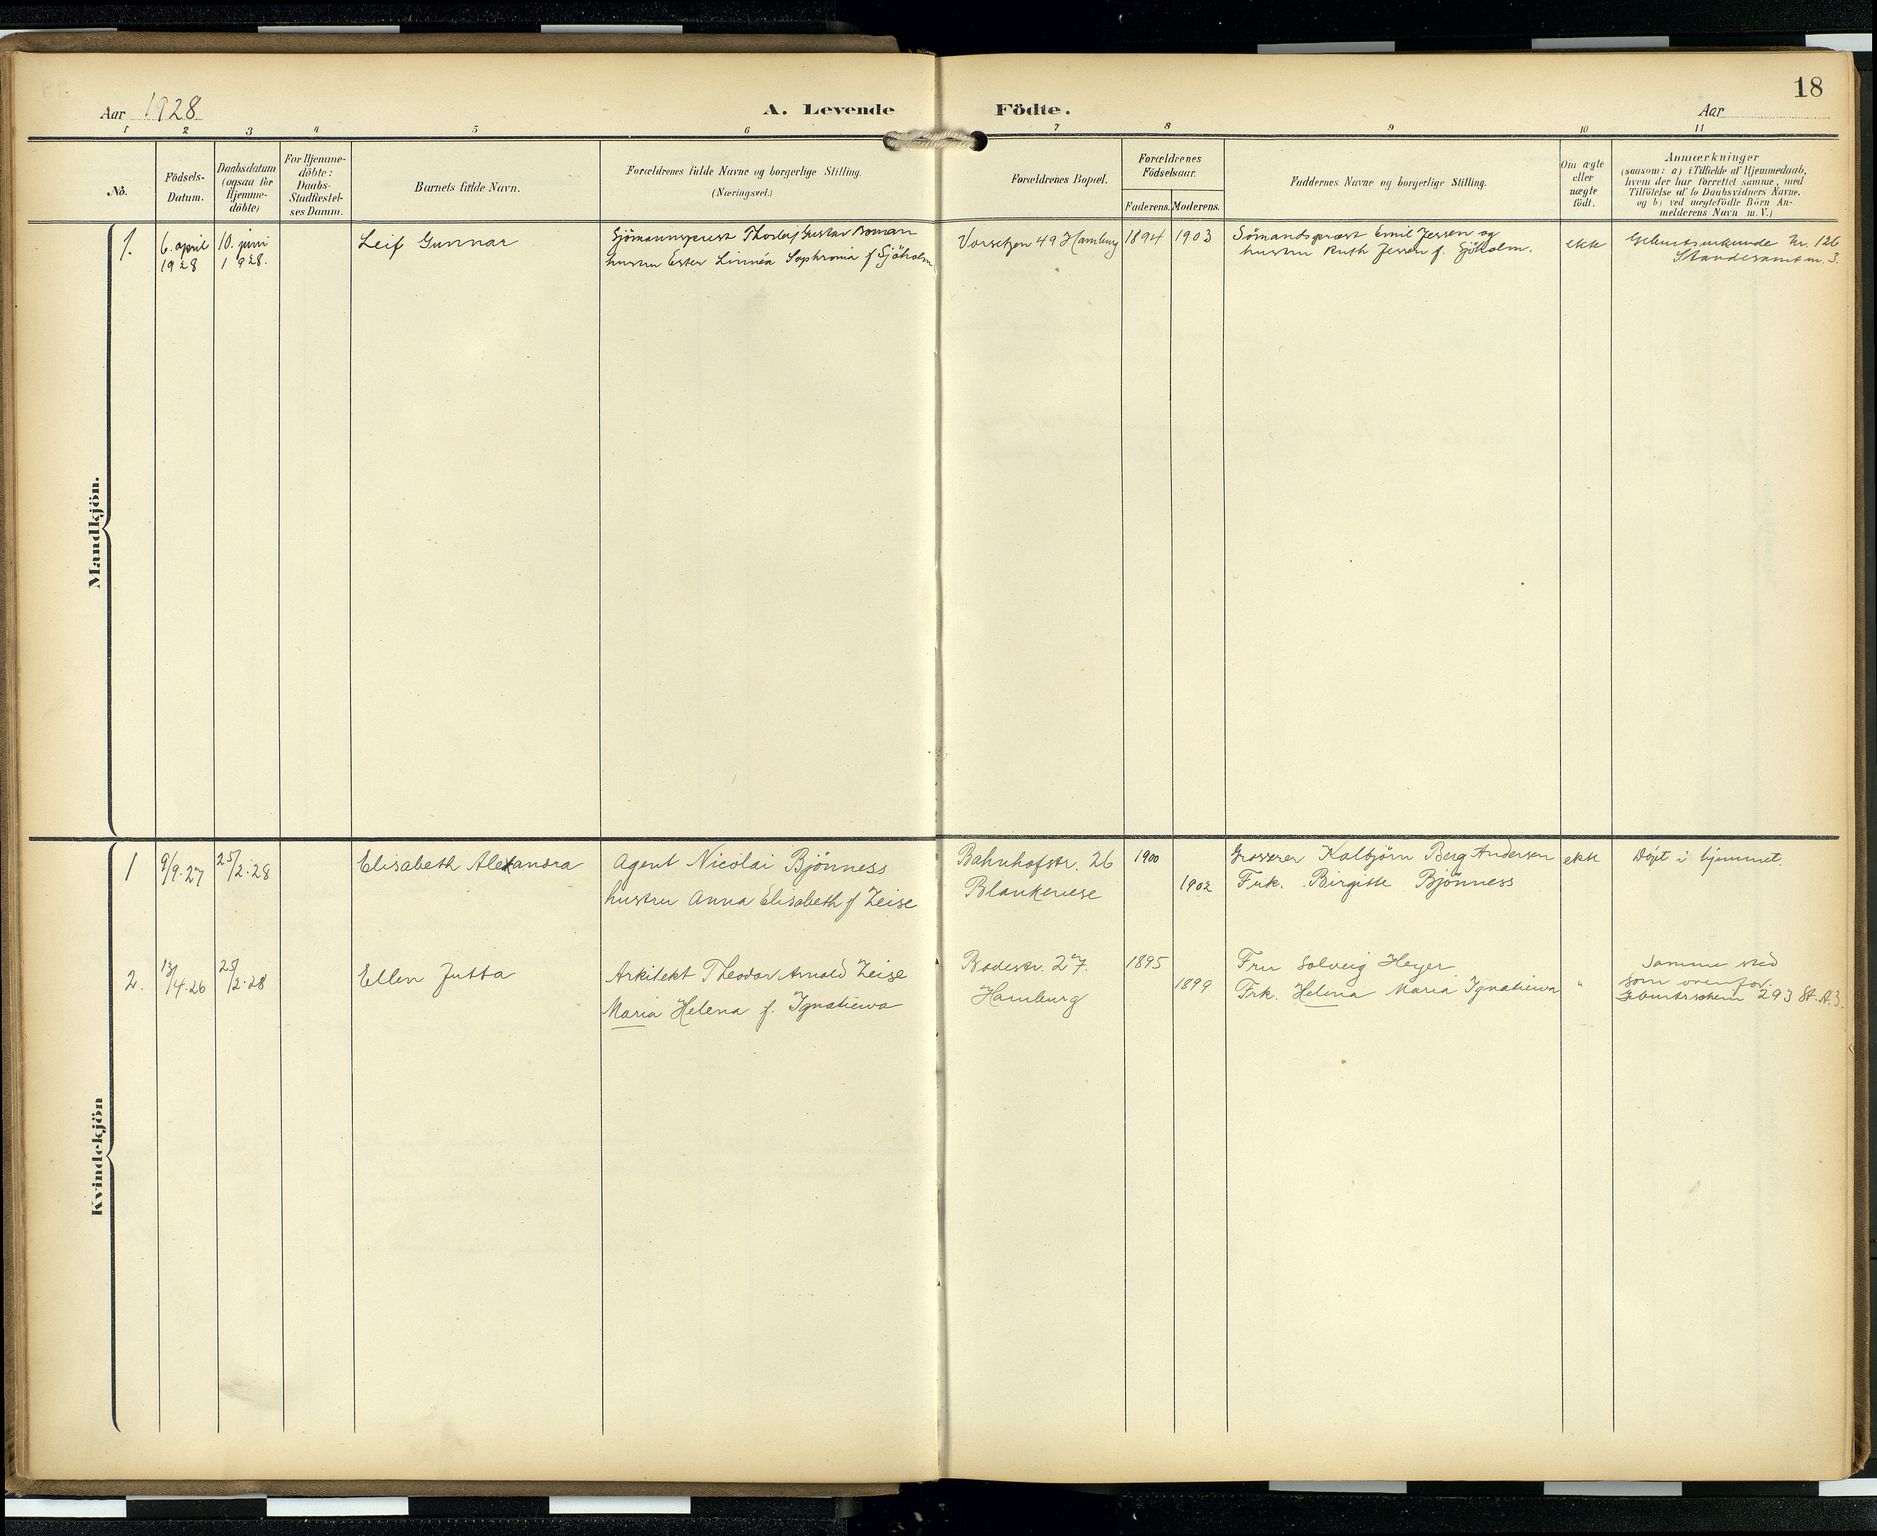 18
Aar 1928
A. Levende Födte.
Aar
1 2 3 4 5 6 7 8 9 10 11
No.
Födsels-
Datum.
Daabsdatum
(ogsaa for
Hjemme-
döbte)
For Hjemme-
döbte:
Daabs-
Stadfæstel-
ses Datum.
Barnets fulde Navn.
Forældrenes fulde Navne og borgerlige Stilling.
(Næringsvei.)
Forældrenes Bopæl.
Forældrenes
Födselsaar.
Faderens. Moderens.
Faddernes Navne og borgerlige Stilling.
Om ægte
eller
uægte
födt.
Anmærkninger
(saasom: a) i Tilfælde af Hjemmedaab,
hvem der har forrettet samme, med
Tilföielse af to Daabsvidners Navne,
og b) ved uægtefödte Börn An-
melderens Navn m. V.)
Mandkjön.
1.
6. april
1928
10. juni
1928.
Leif Gunnar
Sjömannsprest Thorleif Gustav Boman
hustru Ester Linnéa Sophronia f. Sjöholm
Vorsetzen 49 Hamburg
1894
1903
Sømandspræst Emil Jessen og
hustru Ruth Jessen f. Sjöholm.
ekte
Geburtsurkunde Nr. 126
Standesamt nr. 3.
Kvindekjön
1
9/9.27
25/2.28
Elisabeth Alexandra
Agent Nicolai Bjönness
hustru Anna Elisabeth f. Zeise
Bahnhofstr. 26
Blankenese
1900
1902
Grosserer Kolbjörn Berg Andersen
Frk. Birgitte Bjönness
ekte
Döpt i hjemmet.
2.
13/4.26
25/2.28
Ellen Jutta
Arkitekt Theodor Arnold Zeise
Maria Helena f. Ignatiewa
Bodestr. 27.
Hamburg
1895
1899
Fru Solveig Heyer
Frk. Helena Maria Ignatiewa
"
Samme sted
som ovenfor.
Geburtsschein 293 St. A. 3.